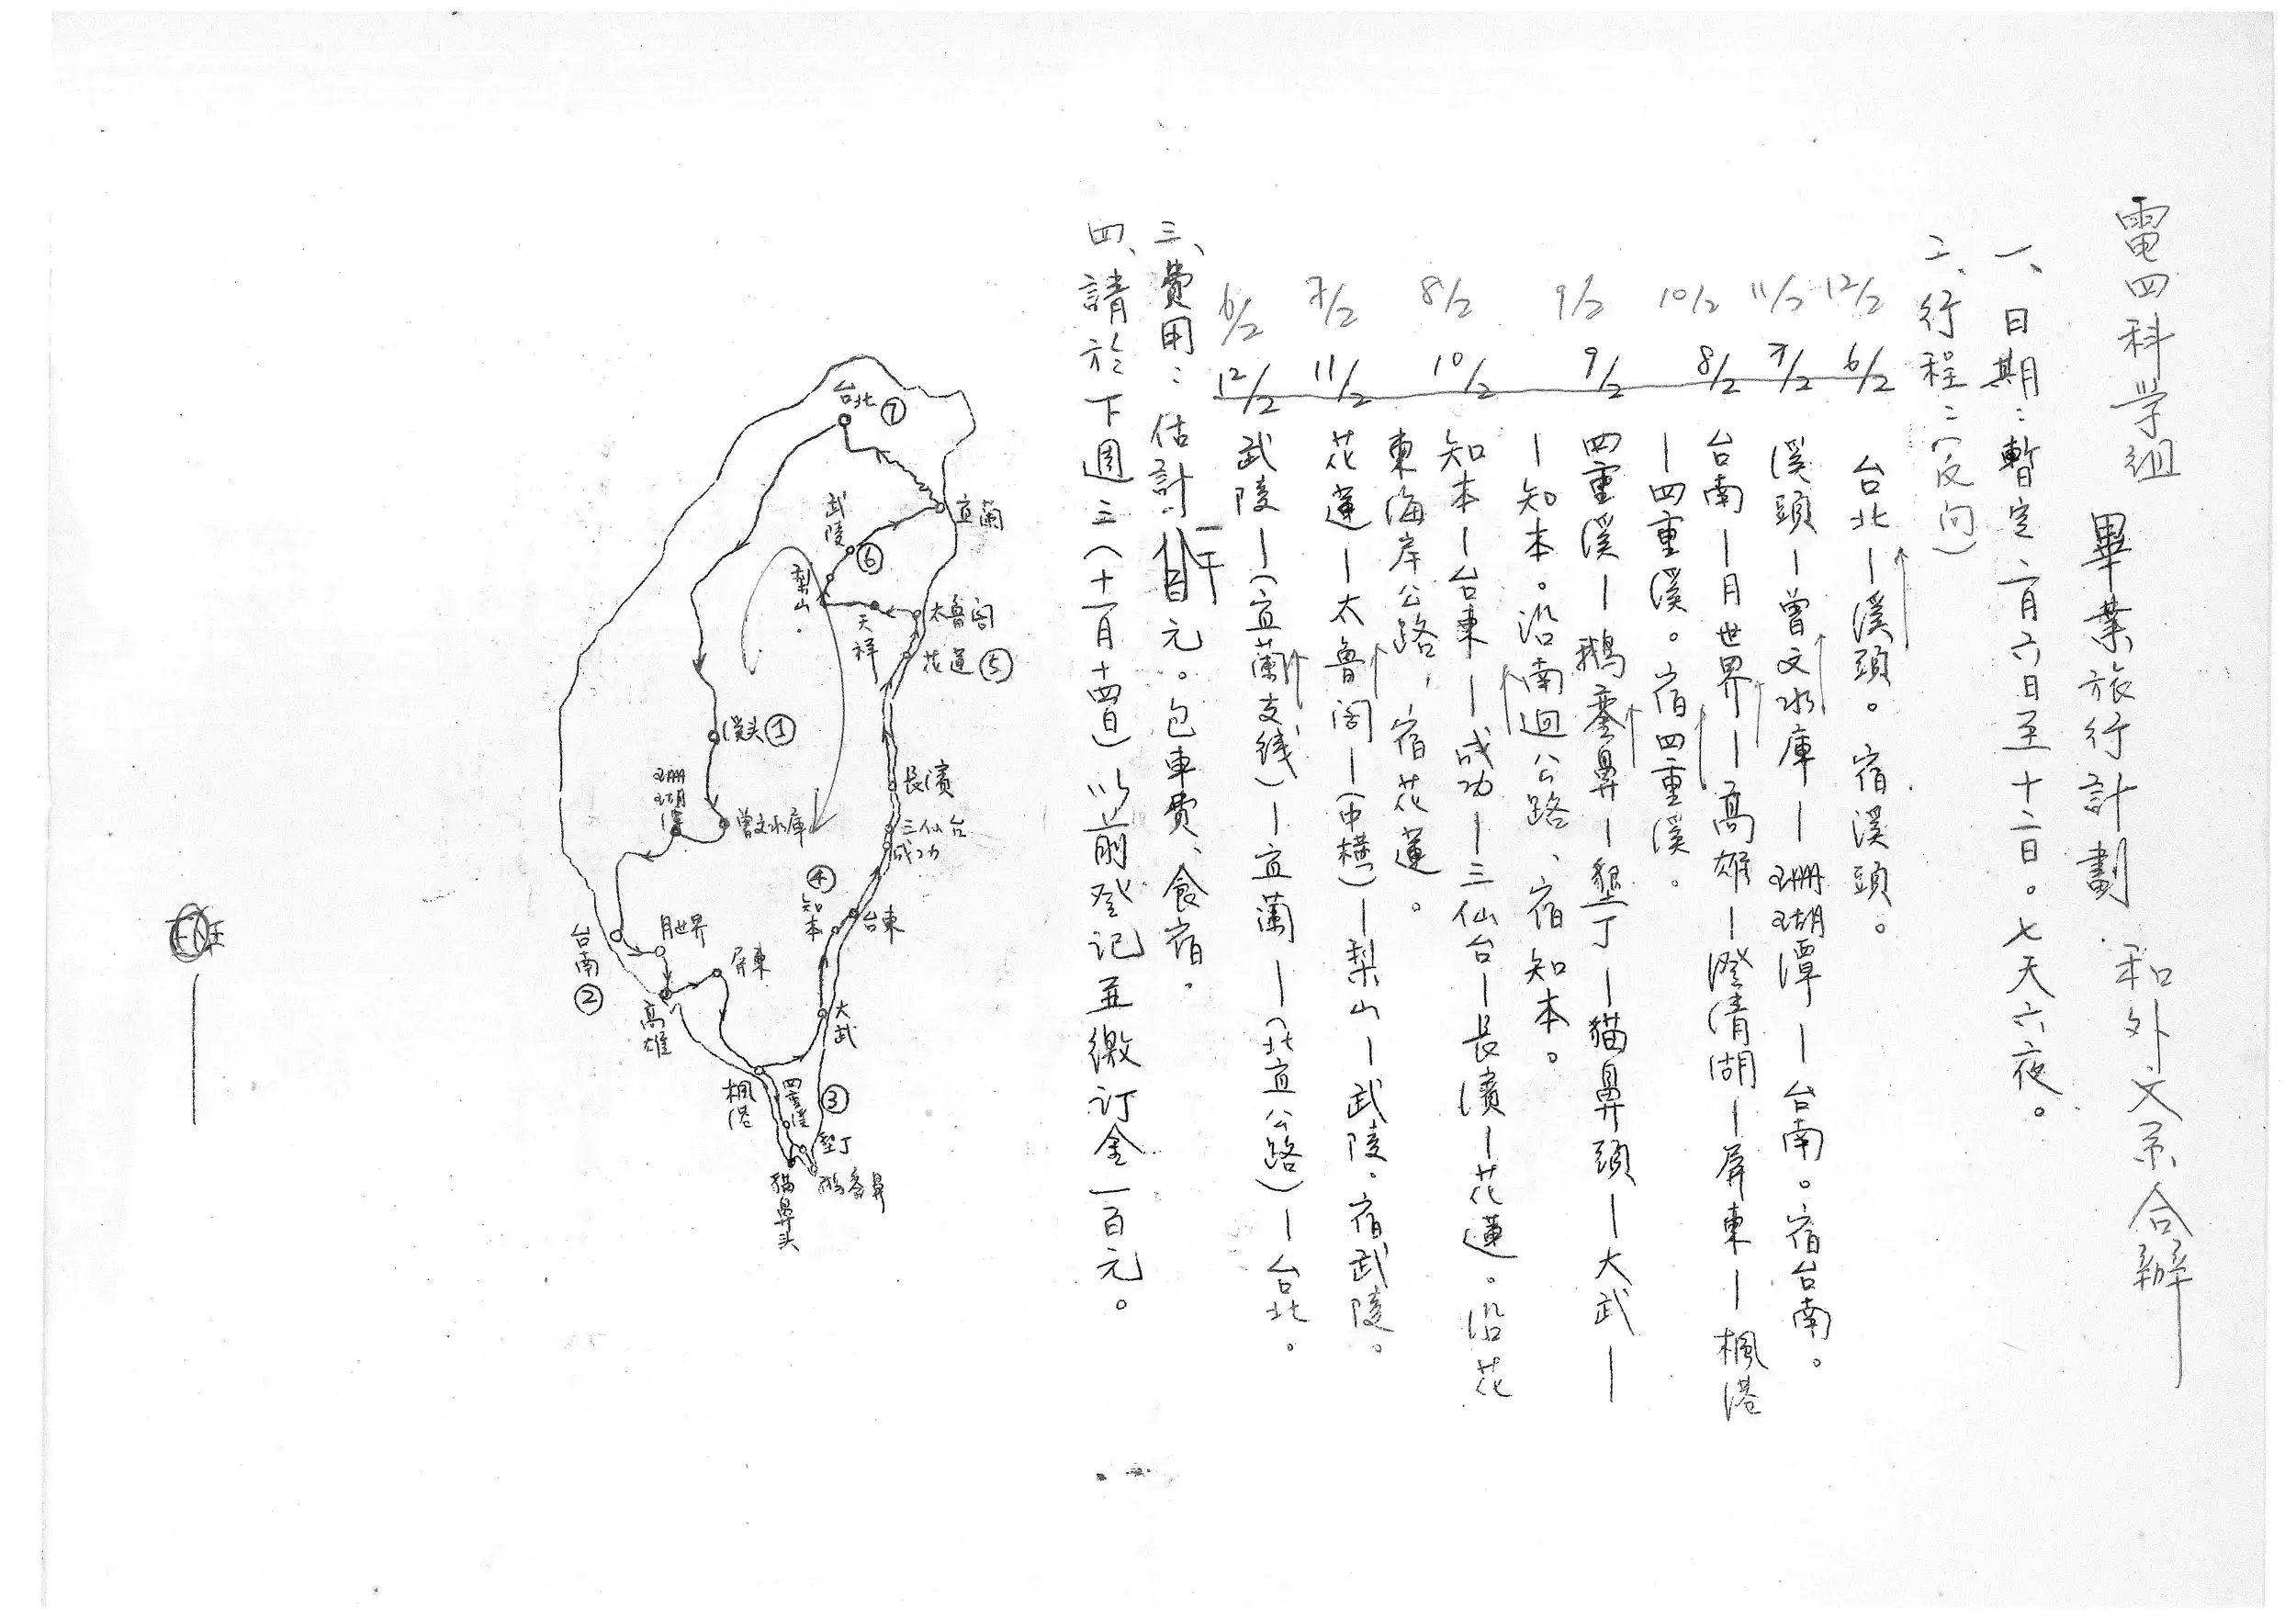 電四科学組 畢業旅行計劃 和外文系合辦
一、日期：暫定二月六日至十二日。七天六夜。
二、行程：(反向)
12/2 6/2 台北—溪頭。宿溪頭。
11/2 7/2 溪頭—曾文水庫—珊瑚潭—台南。宿台南。
10/2 8/2 台南—月世界—高雄—澄清湖—屏東—楓港
—四重溪。宿四重溪。
9/2 9/2 四重溪—鵝鑾鼻—墾丁—貓鼻頭—大武—
—知本。沿南迴公路、宿知本。
8/2 10/2 知本—台東—成功—三仙台—長濱—花蓮。沿花
東海岸公路，宿花蓮。
7/2 11/2 花蓮—太魯閣—(中橫)—梨山—武陵。宿武陵。
6/2 12/2 武陵—(宜蘭支线)—宜蘭—(北宜公路)—台北。
三、費用：估計一千元。包車費、食宿。
四、請於下週三(十一月十四日)以前登记並繳订金一百元。
台北⑦
宜蘭
武陵⑥
梨山
天祥
太魯閣
花蓮⑤
溪头①
珊瑚潭
曾文水庫
長濱
三仙台
成功
④知本
台東
台南②
月世界
屏東
高雄
大武
楓港
四重溪③
墾丁
鵝鑾鼻
貓鼻头